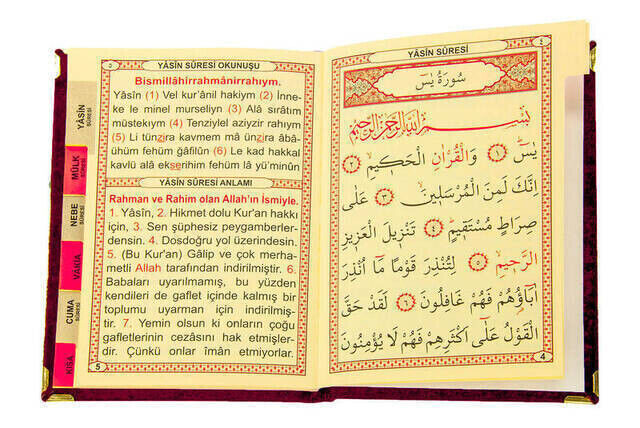 YÂSÎN SÛRESİ OKUNUŞU
Bismillâhirrahmânirrahıym.
Yâsîn (1) Vel kur'ânil hakiym (2) İnne-
ke le minel murseliyn (3) Alâ sırâtım
müstekıym (4) Tenziylel aziyzir rahıym
(5) Li tünzira kavmem mâ ünzira âbâ-
ühüm fehüm ğafilûn (6) Le kad hakkal
kavlü alâ ekserihim fehüm lâ yü'minûn
YÂSÎN SÛRESİ ANLAMI
Rahman ve Rahim olan Allah'ın İsmiyle.
1. Yâsîn, 2. Hikmet dolu Kur'an hakkı
için, 3. Sen şüphesiz peygamberler-
densin. 4. Dosdoğru yol üzerindesin.
5. (Bu Kur'an) Gâlip ve çok merha-
metli Allah tarafından indirilmiştir. 6.
Babaları uyarılmamış, bu yüzden
kendileri de gaflet içinde kalmış bir
toplumu uyarman için indirilmiş-
tir. 7. Yemin olsun ki onların çoğu
gafletlerinin cezasını hak etmişler-
dir. Çünkü onlar îmân etmiyorlar.
5
YÂSİN
SÛRESİ
MÜLK
SÛRESİ
NEBE
SÛRESİ
VÂKIA
CUMA
SÛRESİ
KISA
YÂSÎN SÛRESİ
٤
سُورَةُ يٰسٓ
بِسْمِ اللّٰهِ الرَّحْمٰنِ الرَّحِيمِ
يٰسٓ ﴿١﴾ وَالْقُرْاٰنِ الْحَكِيمِ ﴿٢﴾
اِنَّكَ لَمِنَ الْمُرْسَلِينَ ﴿٣﴾ عَلٰى
صِرَاطٍ مُسْتَقِيمٍ ﴿٤﴾ تَنْزِيلَ الْعَزِيزِ
الرَّحِيمِ ﴿٥﴾ لِتُنْذِرَ قَوْمًا مَٓا اُنْذِرَ
اٰبَٓاؤُهُمْ فَهُمْ غَافِلُونَ ﴿٦﴾ لَقَدْ حَقَّ
الْقَوْلُ عَلٰٓى اَكْثَرِهِمْ فَهُمْ لَا يُؤْمِنُونَ
4